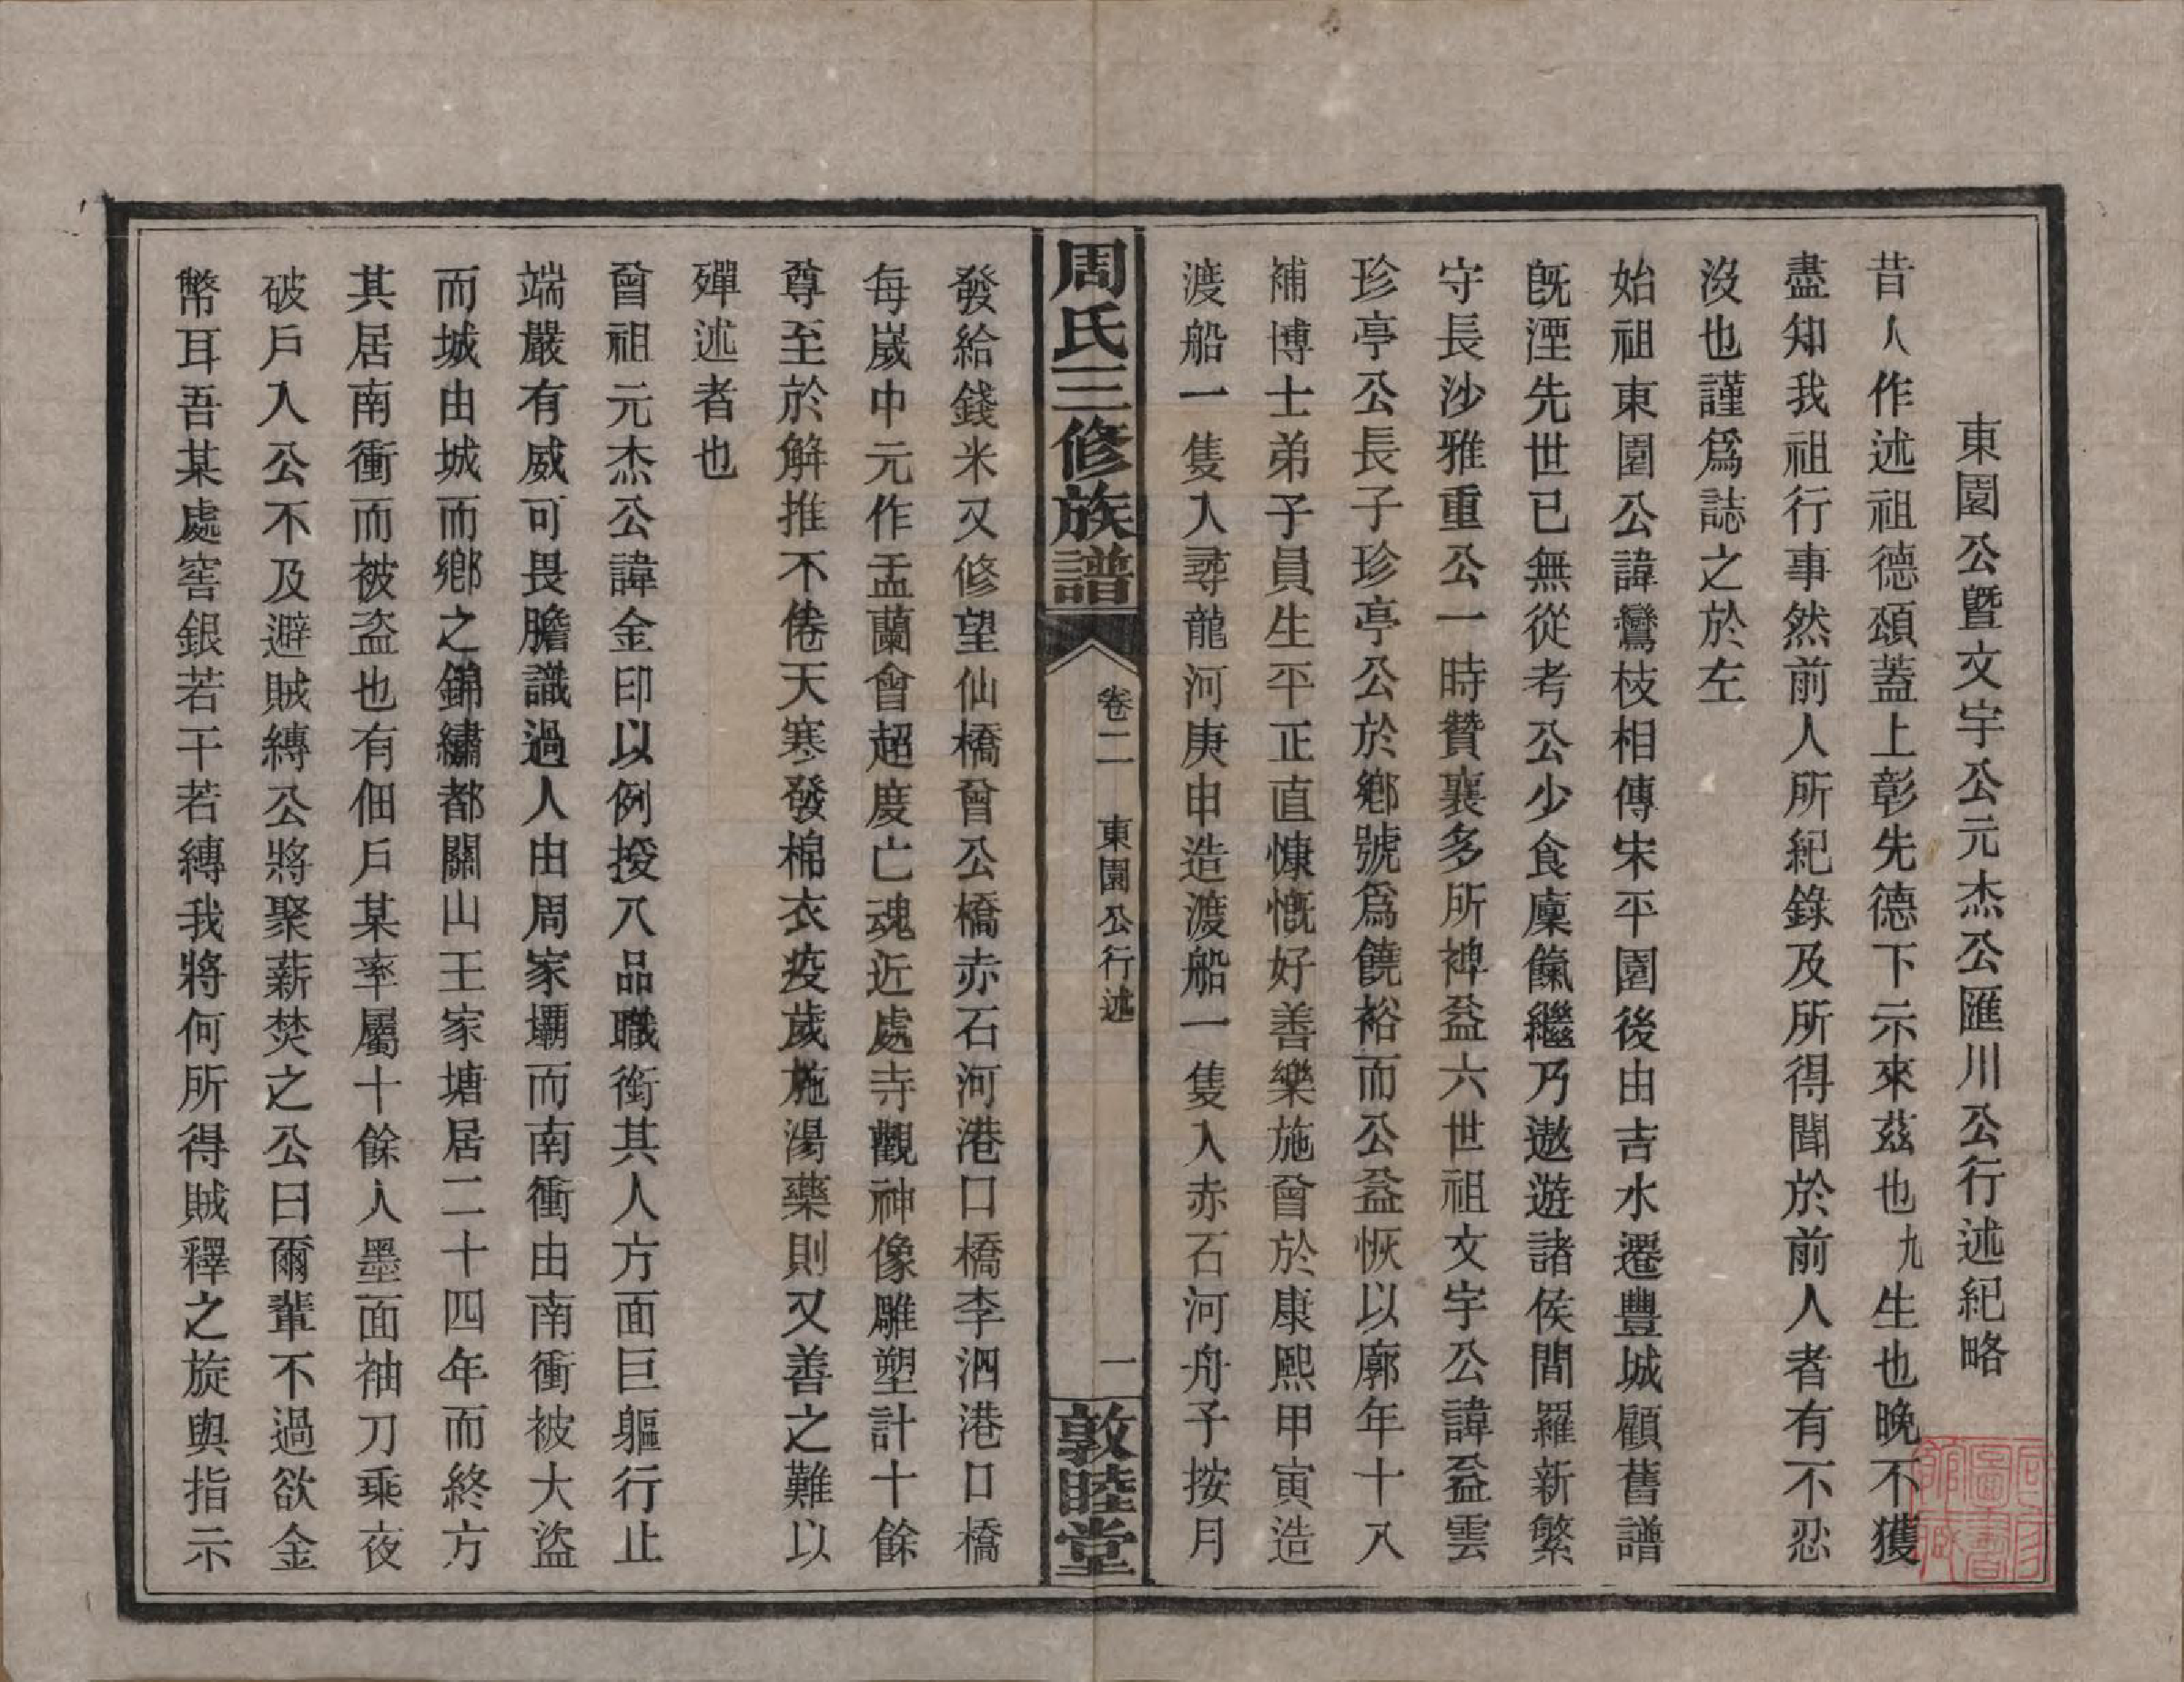 東園公曁文宇公元杰公匯川公行述紀略
昔人作述祖德頌蓋上彰先德下示來茲也九生也晚不獲
盡知我祖行事然前人所紀錄及所得聞於前人者有不忍
沒也謹爲誌之於左
始祖東園公諱鸞枝相傳宋平園後由吉水遷豐城顧舊譜
旣湮先世已無從考公少食廩餼繼乃遨遊諸侯間羅新繁
守長沙雅重公一時贊襄多所裨益六世祖文宇公諱益雲
珍亭公長子珍亭公於鄉號爲饒裕而公益恢以廓年十八
補博士弟子員生平正直慷慨好善樂施曾於康熙甲寅造
渡船一隻入尋龍河庚申造渡船一隻入赤石河舟子按月
周氏三修族譜
卷二
東園公行述
一
敦睦堂
發給錢米又修望仙橋曾公橋赤石河港口橋李泗港口橋
每嵗中元作盂蘭會超度亡魂近處寺觀神像雕塑計十餘
尊至於解推不倦天寒發棉衣疫歲施湯藥則又善之難以
殫述者也
曾祖元杰公諱金印以例授八品職銜其人方面巨軀行止
端嚴有威可畏膽識過人由周家壩而南衝由南衝被大盜
而城由城而鄉之錦繡都關山王家塘居二十四年而終方
其居南衝而被盜也有佃戶某率屬十餘人墨面袖刀乘夜
破戶入公不及避賊縛公將聚薪焚之公曰爾輩不過欲金
幣耳吾某處窖銀若干若縛我將何所得賊釋之旋與指示